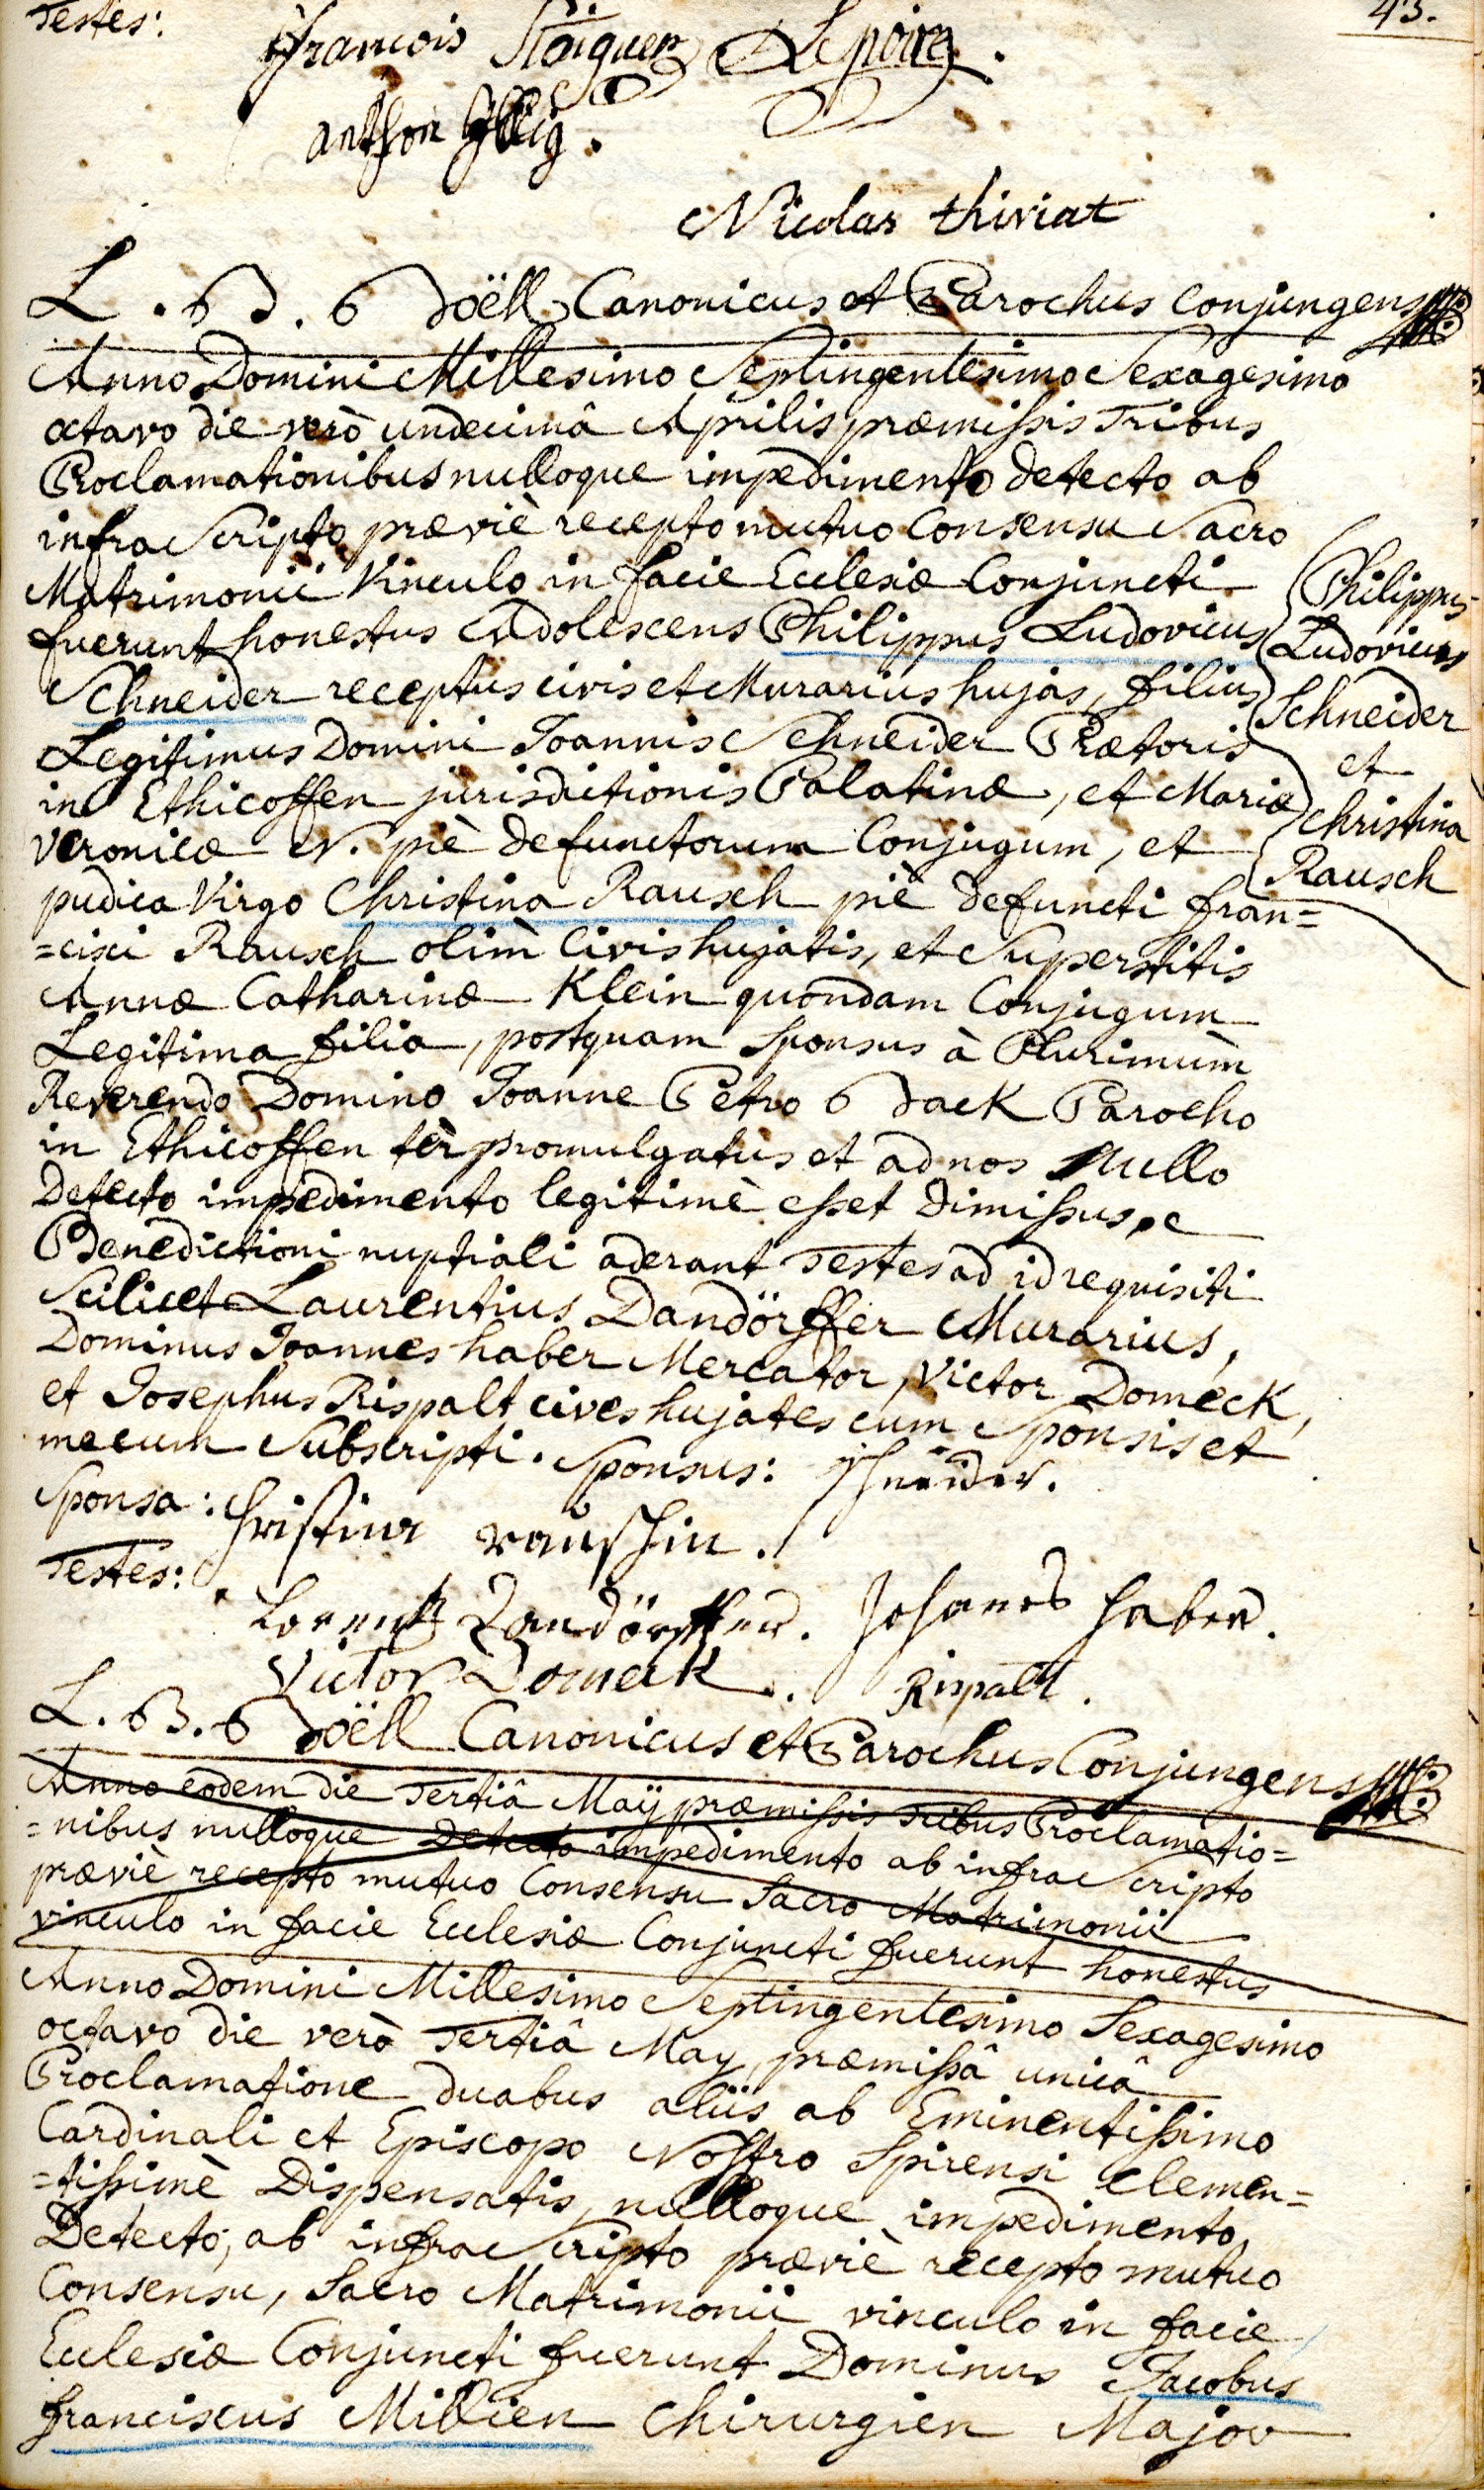 Testes:
43.
francois Stöiguer Lepoire.
anthon Illig.
Nicolas thiviat
L. B. Boëll Canonicus et Parochus Conjungens
Anno Domini Millesimo Septingentesimo Sexagesimo
octavo die verò undecimâ Aprilis præmissis Tribus
Proclamationibus nulloque impedimento detecto ab
infra Scripto præviè recepto mutuo Consensu Sacro
Matrimonii Vinculo in facie Ecclesiæ Conjuncti
fuerunt honestus Adolescens Philippus Ludovicus
Schneider receptus civis et Murarius hujas, filius
Legitimus Domini Joannis Schneider Prætoris
in Ethicoffen jurisdictionis Palatinæ, et Mariæ
Veronicæ N. piè defunctorum Conjugum, et
pudica Virgo Christina Rausch piè defuncti fran=
=cisci Rausch olim Civis hujatis, et Superstitis
Annæ Catharinæ Klein quondam Conjugum
Legitima filia, postquam Sponsus à Plurimùm
Reverendo Domino Joanne Petro Back Parocho
in Ethicoffen tèr promulgatus et ad nos Nullo
Detecto impedimento legitimè esset Dimissus,
Benedictioni nuptiali aderant Testes ad id requisiti
Scilicet Laurentius Dandörffer Murarius,
Dominus Joannes haber Mercator, Victor Domeck,
et Josephus Rispalt cives hujates cum Sponsis et
mecum Subscripti. Sponsus: Schneider.
Sponsa: Christina rauschin.
Testes:
Lorentz Dandörffer. Johanes haber.
Victor Domeck. Rispalt.
Philippus
Ludovicus
Schneider
et
Christina
Rausch
L. B. Boëll Canonicus et Parochus Conjungens
Anno eodem die Tertiâ Maÿ præmissis Tribus Proclamatio=
=nibus nulloque Detecto impedimento ab infra Scripto
præviè recepto mutuo Consensu Sacro Matrimonii
vinculo in facie Ecclesiæ Conjuncti fuerunt honestus
Anno Domini Millesimo Septingentesimo Sexagesimo
octavo die verò Tertiâ May, præmissâ unicâ
Proclamatione duabus aliis ab Eminentissimo
Cardinali et Episcopo Nostro Spirensi Clemen=
=tissimè Dispensatis, nulloque impedimento
Detecto, ab infra Scripto præviè recepto mutuo
Consensu, Sacro Matrimonii vinculo in facie
Ecclesiæ Conjuncti fuerunt Dominus Jacobus
franciscus Millien Chirurgien Major